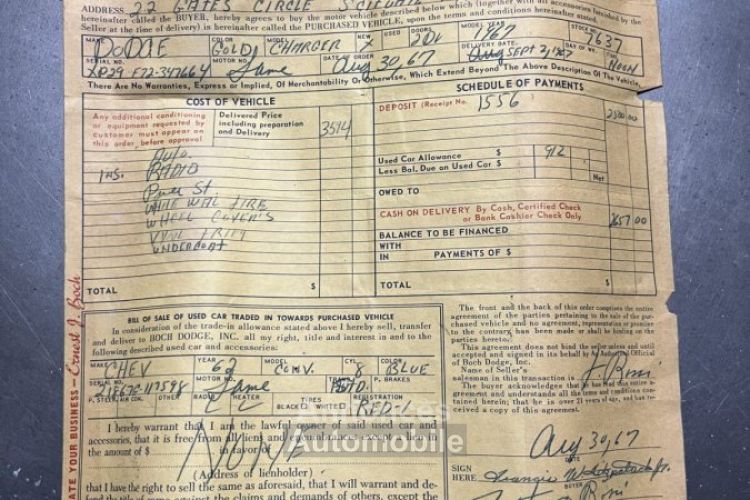 ADDRESS 22 GATES CIRCLE
hereinafter called the BUYER, hereby agrees to buy the motor vehicle described below which (together with all accessories furnished by the
Seller at the time of delivery) is hereinafter called the PURCHASED VEHICLE, upon the terms and conditions hereinafter stated.
MAKE DODGE COLOR GOLD MODEL CHARGER NEW X USED DOORS 2DR MODEL YEAR 1967 STOCK NO. 7637
SERIAL NO. XP29 F72-347664 MOTOR NO. Same DATE OF ORDER Aug 30, 67 DELIVERY DATE SEPT 2, 1967 NOON
There Are No Warranties, Express or Implied, Of Merchantability Or Otherwise, Which Extend Beyond The Above Description Of The Vehicle.
COST OF VEHICLE
SCHEDULE OF PAYMENTS
Any additional conditioning
or equipment requested by
Customer must appear on
this order, before approval
Delivered Price
including preparation
and Delivery
3514
DEPOSIT (Receipt No. 1556
Auto.
INS. RADIO
Power St.
WHITE WAL TIRE
WHEEL COVER'S
UNDERCOAT
Used Car Allowance $ 912
Less Bal. Due on Used Car $
Net
OWED TO
CASH ON DELIVERY By Cash, Certified Check
or Bank Cashier Check Only
1657 00
BALANCE TO BE FINANCED
WITH
IN PAYMENTS OF $
TOTAL $
TOTAL $
BILL OF SALE OF USED CAR TRADED IN TOWARDS PURCHASED VEHICLE
In consideration of the trade-in allowance stated above I hereby sell, transfer
and deliver to BOCH DODGE, INC. all my right, title and interest in and to the
following described used car and accessories:
MAKE CHEV YEAR 62 MODEL CONV. CYL. 8 COLOR BLUE
SERIAL NO. MOTOR NO. Same AUTO. P. BRAKES
P. STEER. AIR CON. OTHER RADIO HEATER TIRES BLACK WHITE REGISTRATION
I hereby warrant that I am the lawful owner of said used car and
accessories, that it is free from all liens and encumbrances except a lien in
the amount of $ NONE in favor of
(Address of lienholder)
that I have the right to sell the same as aforesaid, that I will warrant and de-
fend the title of same against the claims and demands of others, except the
The front and the back of this order comprises the entire
agreement of the parties pertaining to the sale of the pur-
chased vehicle and no agreement, representation or promise
to the contrary has been made or shall be binding on the
parties hereto.
This agreement does not bind the seller unless and until
accepted and signed in its behalf by an Authorized Official
of Boch Dodge, Inc.
Name of Seller's
salesman in this transaction is
The buyer acknowledges that he has read this entire a-
greement and understands all the terms and conditions con-
tained herein; that he is over 21 years of age, and has re-
ceived a copy of this agreement.
Aug 30, 67
SIGN
HERE
BUYER
ATE YOUR BUSINESS — Ernest J. Boch
Automobile